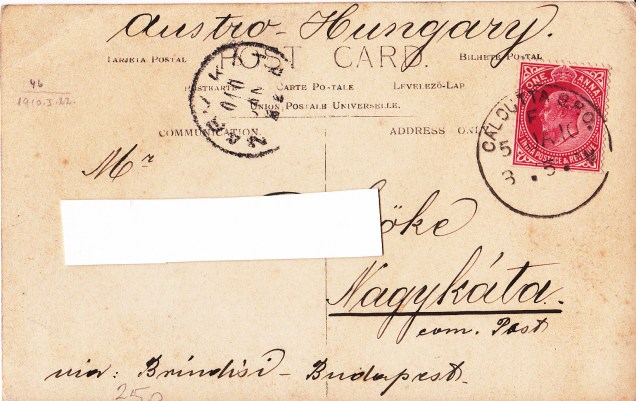 Austro-Hungary.
POST CARD.
TARJETA POSTAL
BILHETE POSTAL
POSTKARTE
CARTE POSTALE
LEVELEZŐ-LAP
UNION POSTALE UNIVERSELLE.
46
1910.3.22.
COMMUNICATION.
ADDRESS ONLY
ONE ANNA
INDIA POSTAGE & REVENUE
CALCUTTA G.P.O.
Mr
őke
Nagykáta.
com. Pest
via: Brindisi - Budapest.
250